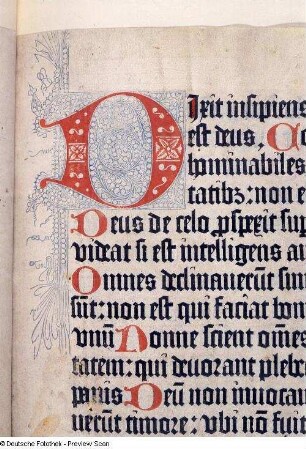 Dixit insipiens
est deus, Co
hominabiles
tatibz: non e
Deus de celo ꝓspexit sup
videat si est intelligens au
Omnes declinauerūt sim
sūt: non est qui faciat bon
vnū Nonne scient om̄es
tatem: qui deuorant plebe
panis Deū non inuocau
uerūt timore: vbi nō fuit
© Deutsche Fotothek - Preview Scan